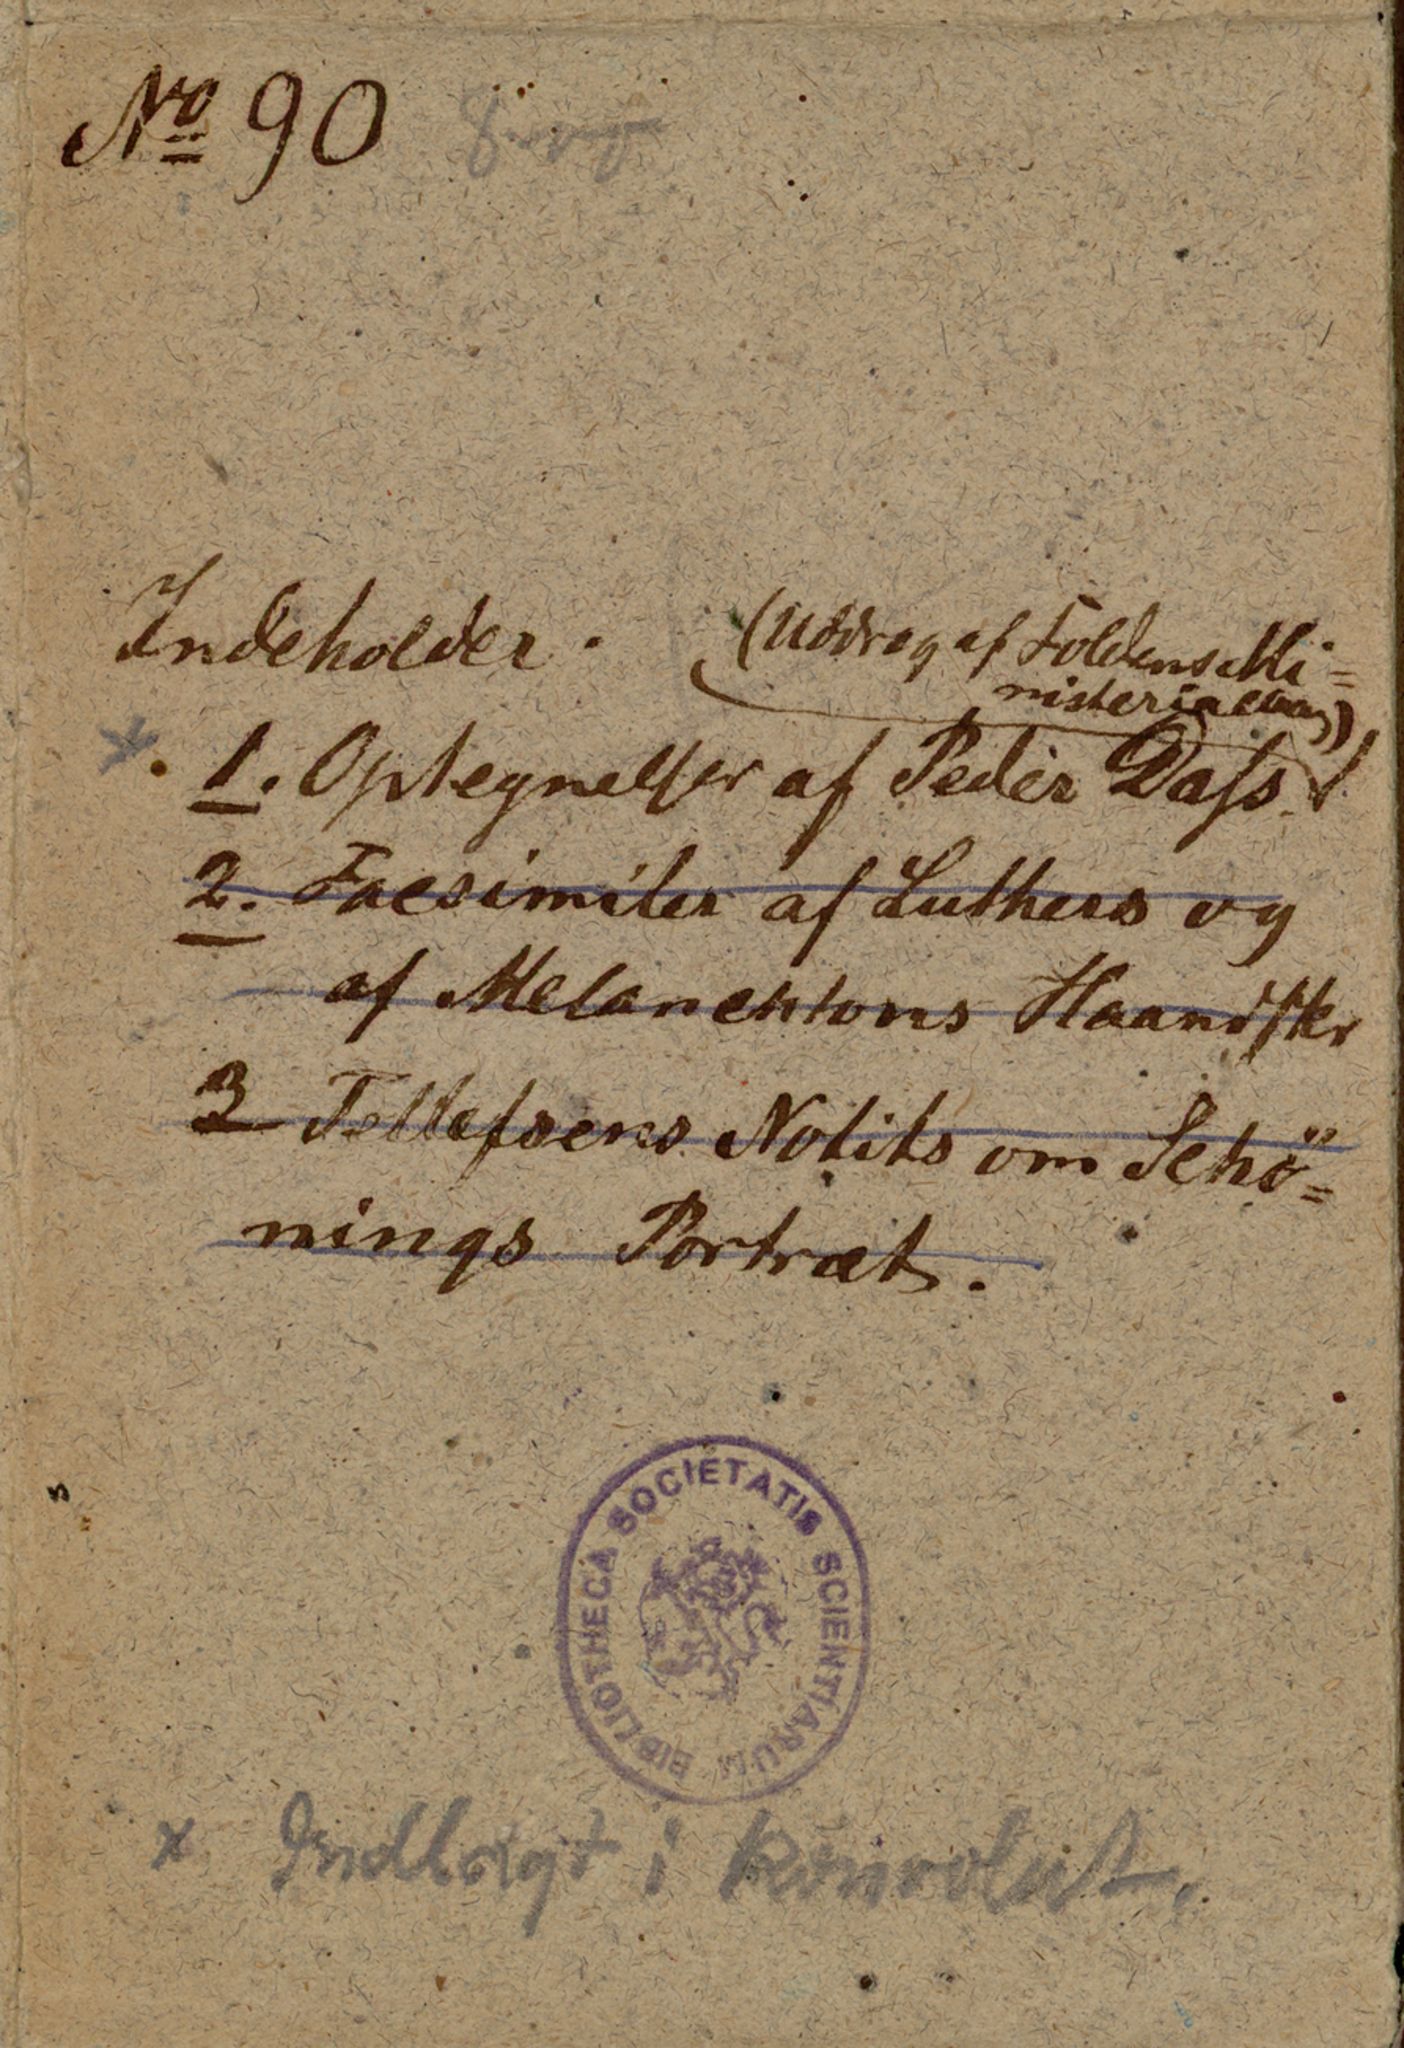 No 90
Indeholder.
(Uddrag af Foldens Mi=
nisterialbog)
1. Optegnelser af Peder Dass.
2. Facsimiler af Luthers og
af Melanchtons Haandskr
3 Tellefsens Notits om Schö=
nings Portræt.
BIBLIOTHECA SOCIETATIS SCIENTIARUM
x Indlagt i konvolut.